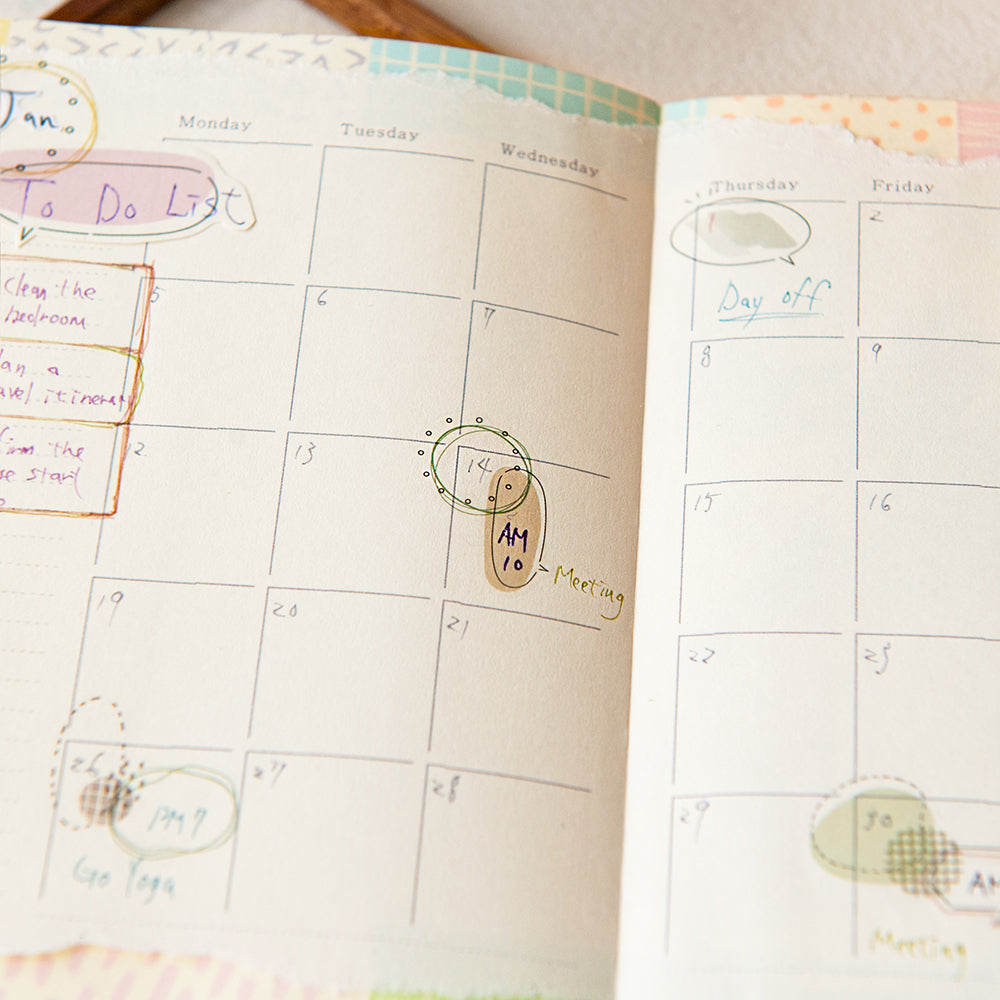 Jan.
Monday Tuesday Wednesday Thursday Friday
To Do List
1 2
Day off
Clean the
bedroom
5 6 7 8 9
an a
avel itinerary
12 13 14 15 16
firm the
se start
AM
10
Meeting
19 20 21 22 23
26 27 28 29 30
PM 7
AM
Go Yoga
Meeting